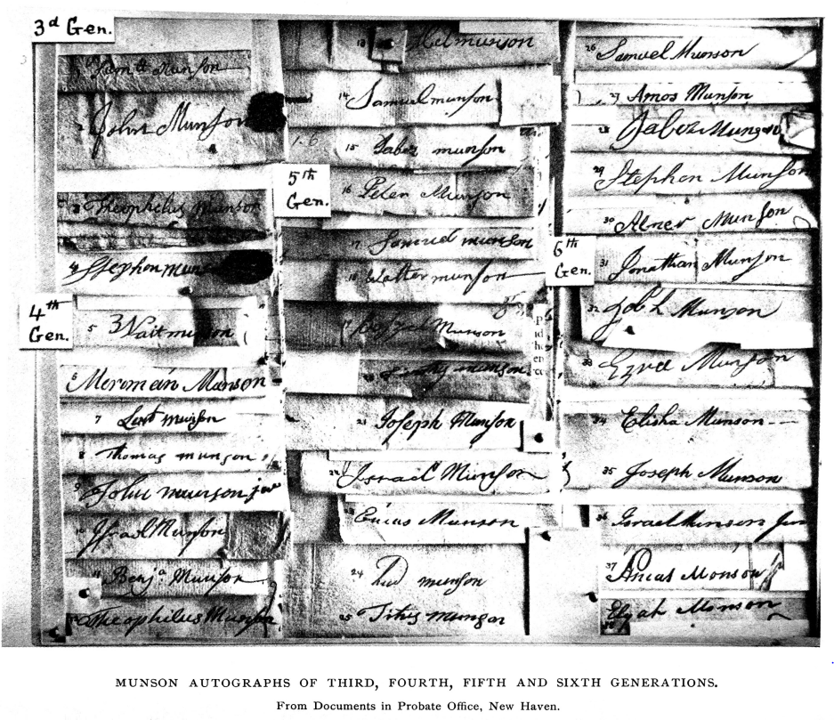 3d Gen.
1 Sam ll Munson
2 John Munson
3 Theophilus Munson
4 Stephen Munson
4th Gen.
5 Wait munson
6 Merriman Munson
7 Lent munson
8 Thomas munson
9 John munson jur
10 Israel Munson
11 Benja Munson
12 Theophilus Munson
13 munson
14 Samuel munson
15 Jabez munson
5th Gen.
16 Peter Munson
17 Samuel munson
18 Walter munson
Munson
20 munson
21 Joseph Munson
22 Israel Munson
23 Eneas Munson
24 munson
25 Titus munson
26 Samuel Munson
27 Amos Munson
28 Jabez Munson
29 Stephen Munson
30 Abner Munson
6th Gen.
31 Jonathan Munson
32 Job L Munson
33 Ezra Munson
34 Elisha Munson
35 Joseph Munson
36 Israel Munson Jun
37 Aneas Monson
38 Elijah Monson
MUNSON AUTOGRAPHS OF THIRD, FOURTH, FIFTH AND SIXTH GENERATIONS.
From Documents in Probate Office, New Haven.